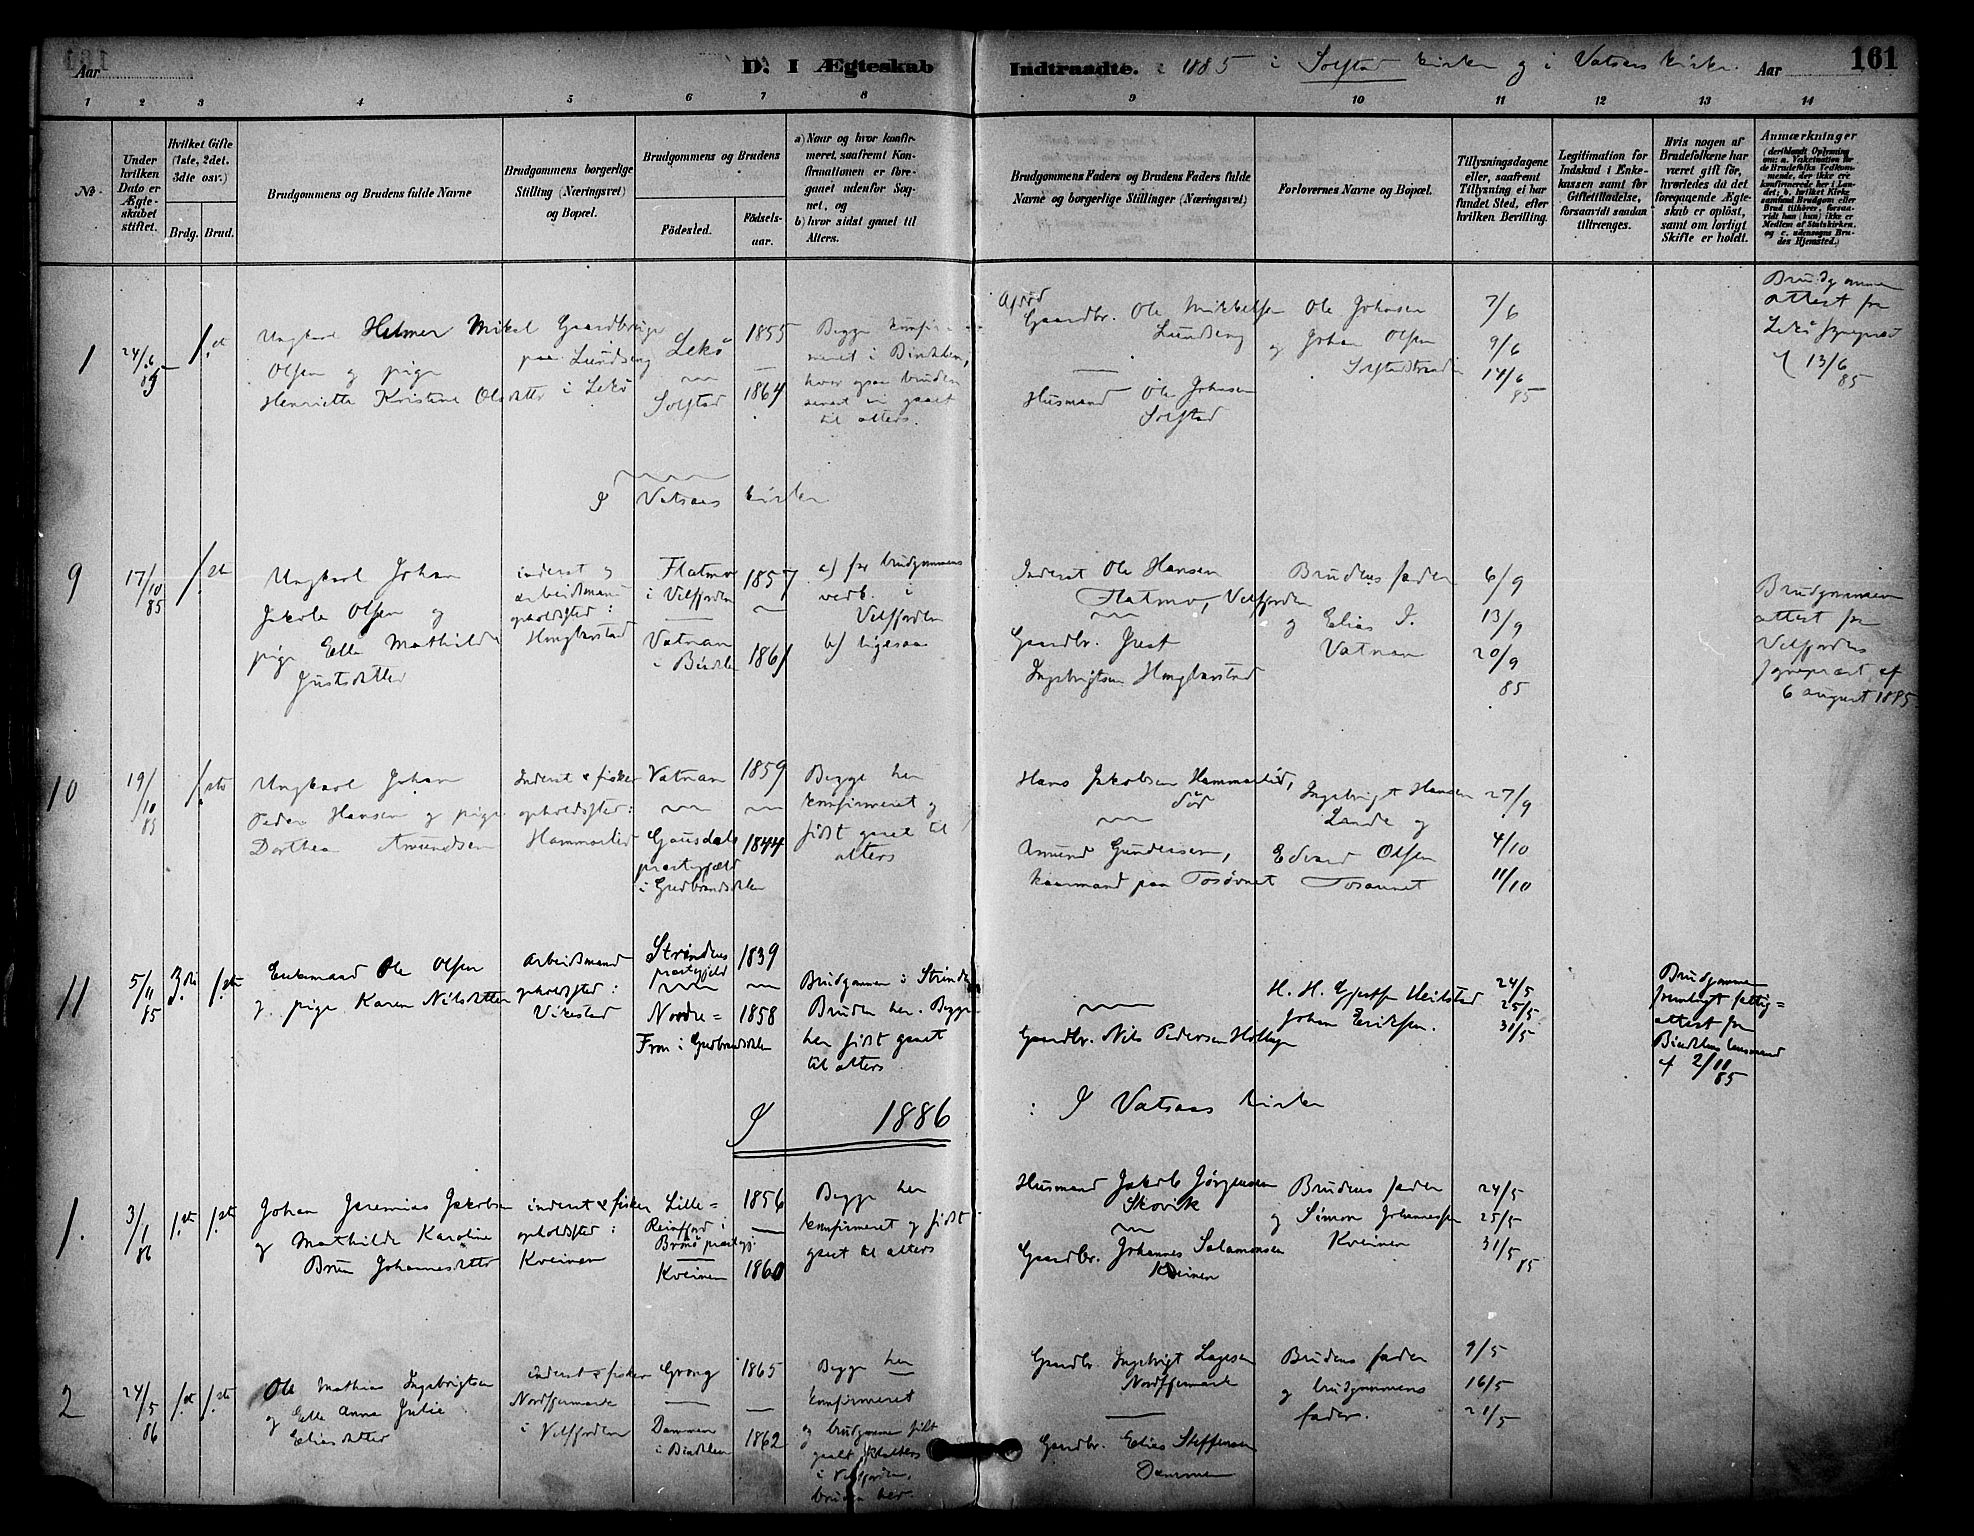 161
Aar
D. I Ægteskab Indtraadte. 1885 i Solstad kirke og i Vatsaas kirke. Aar
1 2 3 4 5 6 7 8 9 10 11 12 13 14
No.
Under hvilken Dato er Ægteskabet stiftet.
Hvilket Gifte (1ste, 2det, 3die osv.)
Brdg. Brud.
Brudgommens og Brudens fulde Navne
Brudgommens borgerlige Stilling (Næringsvei) og Bopæl.
Brudgommens og Brudens
Fødested.
Fødsels-aar.
a) Naar og hvor konfirmeret, saafremt Konfirmationen er foregaaet udenfor Sognet, og
b) hvor sidst gaaet til Alters.
Brudgommens Faders og Brudens Faders fulde Navne og borgerlige Stillinger (Næringsvei)
Forlovernes Navne og Bopæl.
Tillysningsdagene eller, saafremt Tillysning ei har fundet Sted, efter hvilken Bevilling.
Legitimation for Indskud i Enkekassen samt for Giftetilladelse, forsaavidt saadan tiltrænges.
Hvis nogen af Brudefolkene har været gift før, hvorledes da det foregaaende Ægteskab er opløst, samt om lovligt Skifte er holdt.
Anmærkninger (deriblandt Oplysning om: a. Vakcination for de Brudefolks Vedkommende, der ikke ere konfirmerede her i Landet; b. hvilket Kirkesamfund Brudgom eller Brud tilhører, forsaavidt han (hun) ikke er Medlem af Statskirken, og c. udensogns Brudes Hjemsted.)
1
24/6 85
1.st
Ungkarl Helmer Mikal
Olsen og pige
Henriette Kristine Olsdtter
Gaardbruger
paa Lundseng
i Lekø
Lekø
Solstad
1855
1864
Begge konfirmeret i Bindalen,
hvor ogsaa bruden
senest er gaaet
til alters.
Afdød
Gaardbr. Ole Mikkelsen
Lundseng
Husmand Ole Johnsen
Solstad
Ole Johnsen
og Johan Olsen
Solstadstranden
7/6
9/6
14/6
85
Brudgommens
attest fra
Lekø sognepræst
af 13/6
85
I Vatsaas kirke
9
17/10 85
1.ste
Ungkarl Johan
Jakob Olsen og
pige Elle Mathilde
Justsdtter
inderst og
arbeidsmand
opholdssted:
Hougkarstad
Flatmo
i Velfjorden
Vatnan
i Bindalen
1857
1861
a) for brudgommens
vedk. i
Velfjorden
b) ligesaa
Inderst Ole Hansen
Flatmo, Velfjorden
Gaardbr. Just
Ingebrigtsen Hougkarstad
Brudens fader
og Elias J.
Vatnan
6/9
13/9
20/9
85
Brudgommens
attest fra
Velfjordens
sognepræst af
6 august 1885.
10
19/10 85
1.ste
Ungkarl Johan
Peder Hansen og pige
Dorthea Amundsen
Inderst & fisker
opholdsster:
Hammerlid
Vatnan
Gausdals
præstegjæld
i Gudbrandsdalen
1859
1844
Begge her
konfirmeret og
sidst gaaet til
alters
Hans Jakobsen Hammerlid,
død
Amund Gundersen,
kaarmand paa Tosøvnet
Ingebrigt Hansen
Lande og
Edvard Olsen
Tosaunet
27/9
4/10
11/10
11
5/11 85
3.die
1.ste
Enkemand Ole Olsen
og pige Karen Nilsdtter
Arbeidsmand
opholdsster:
Vikestad
Strindens
præstegjeld
Nordre=
Fron i Gudbrandsdalen
1839
1858
Brudgommen i Strinden
Bruden her. Begge
her sidst gaaet
til alters
Gaardbr. Nils Pedersen
H. H. Gjertsen Heilstad
Johan Eriksen.
24/5
25/5
31/5
Brudgommen
fremlagt fattig=
attest fra
Bindalens lensmand
af 2/11
85
I 1886: I Vatsaas kirke
1.
3/1 86
1.st
1.ste
Johan Jeremias Jakobsen
og Mathilde Karoline
Bruun Johannesdtter
inderst & fisker
opholdsster:
Kveinen
Lille=
Reinfjord i
Brønø præstegj.
Kveinen
1856
1860
Begge her
konfirmeret og sidst
gaaet til alters
Husmand Jakob Jørgensen
Skovik
Gaardbr. Johannes Salamonsen
Kveinen
Brudens fader
og Simon Johannessen
Kveinen
24/5
25/5
31/5
85
2
24/5 86
1.st
1.ste
Ole Mathias Ingebrigtsen
og Elle Anna Julie
Eliasdtter
inderst & fisker
Nordfjermark
i Velfjorden
Grong
Dammen
i Bindalen
1865
1862
Begge her
konfirmeret
og brudgommen sidst
gaaet til alters
i Velfjorden,
bruden her.
Gaardbr. Ingebrigt Lagesen
Nordfjermark
Gaardbr. Elias Steffensen
Dammen
Brudens fader
og brudgommens
fader.
9/5
16/5
21/5